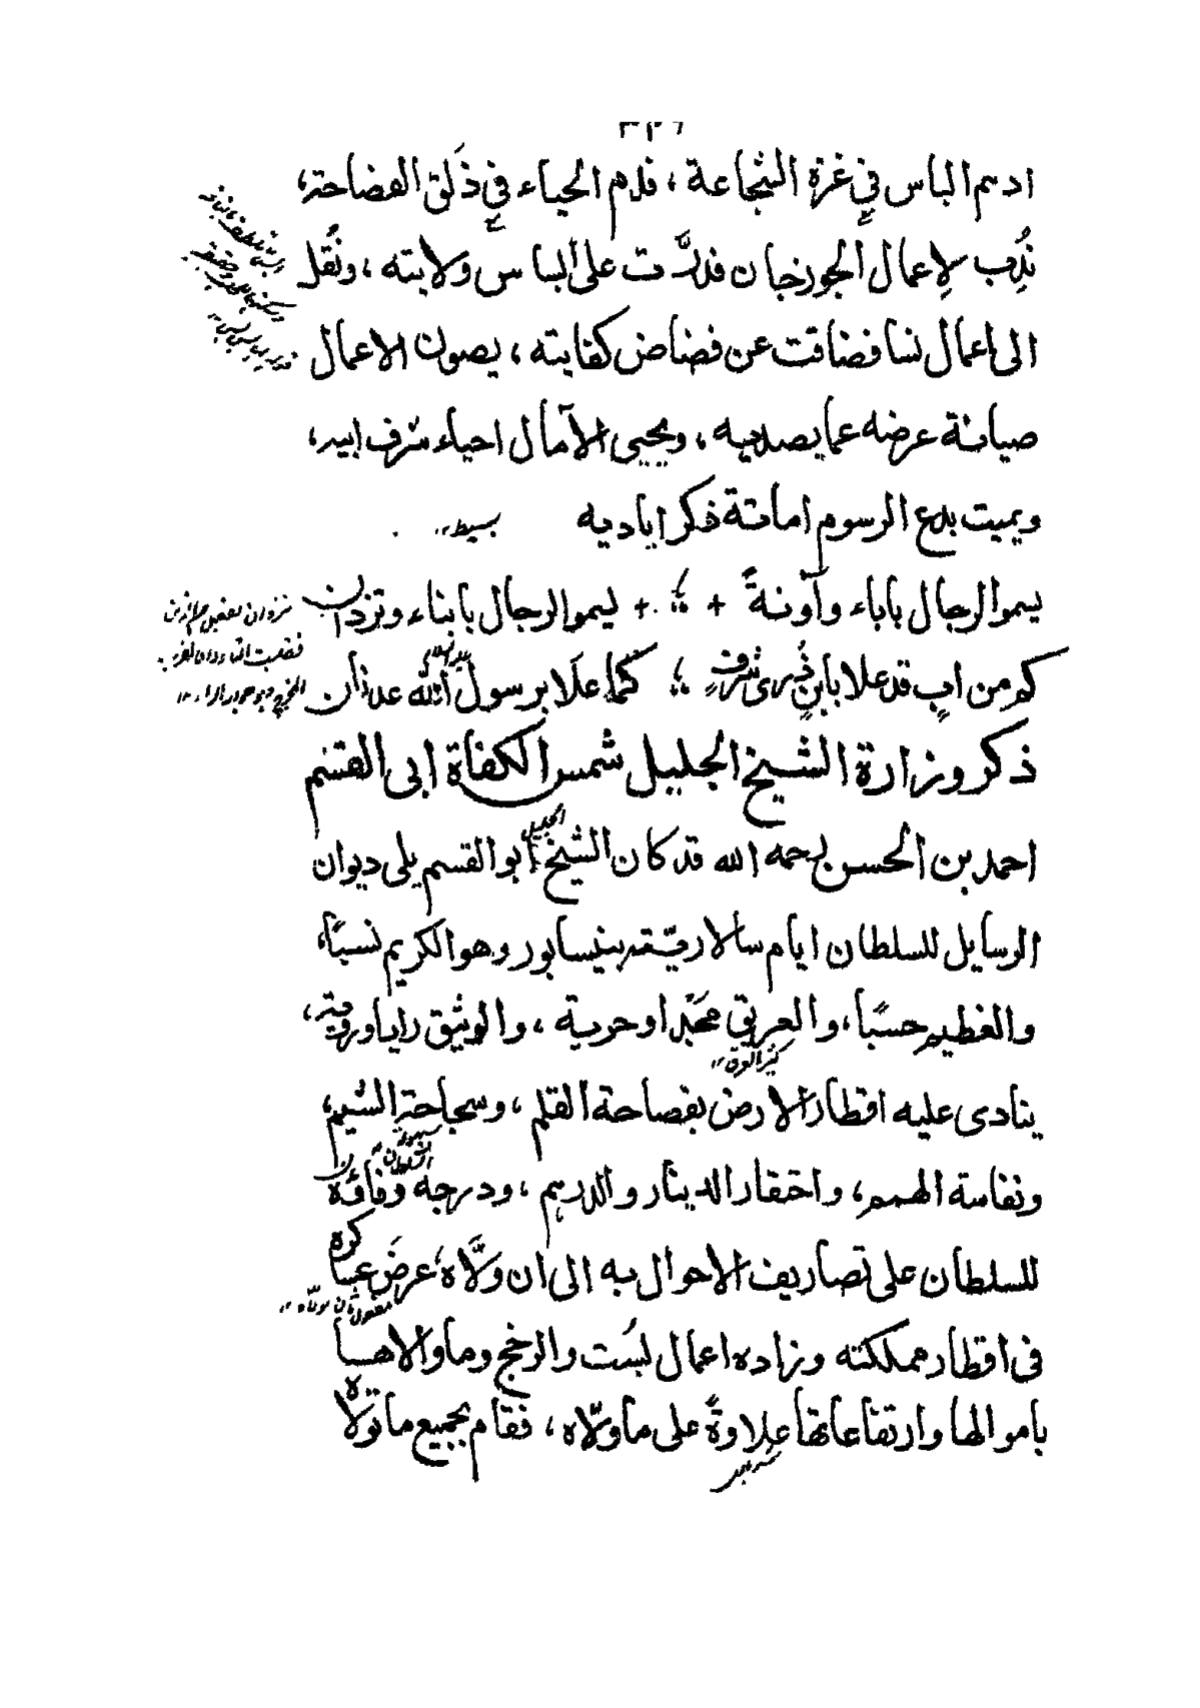 ٣٢٦
ادهم الباس في غرة الشجاعة ، قلم الحياء في ذَلق الفصاحة،
نُدِب لِاعمال الجوزخبان فدرَّت على الباس ولايته ، ونُقل
الى اعمال نسا فضاقت عن فضاض كفايته ، يصون الاعمال
صيانة عرضه عما يصديه ، ويحيى الآمال احياء شرف ابيه،
ويميت بدع الرسوم اماتة ذكر اياديه بسيط
يسموا الرجال باباء وآونةً + ؛؛ + ليموا الرجال بابناء وتزدان
كم من ابٍ قد علا بابنٍ ذُرى شرفٍ ؛؛ كما علَا برسول الله عدنان
عليه السلام
ذكر وزارة الشيخ الجليل شمس الكفاة ابى القسم
احمد بن الحسن رحمه الله قد كان الشيخ الجليل ابو القسم يلى ديوان
الرسايل للسلطان ايام سالاريّته بنيسابور وهو الكريم نسبًا،
والعظيم حسبًا، والعريق مَجدًا وحرية ، والوثيق رايا وروية،
ينادى عليه اقطار الارض بفصاحة القلم ، وسجاحة الشيم،
ونفاسة الهمم، واحتقار الدينار والدرهم ، ودرجه وفاؤه
للسلطان على تصاريف الاحوال به الى ان ولَّاه عرضَ عساكره
مفعول ثان لولّاه
فى اقطار مملكته وزاده اعمال بُست والرخج وما والاهـا
باموالها وارتفاعاتها علاوةً على ما ولّاه ، فقام بجميع ما تولّاه